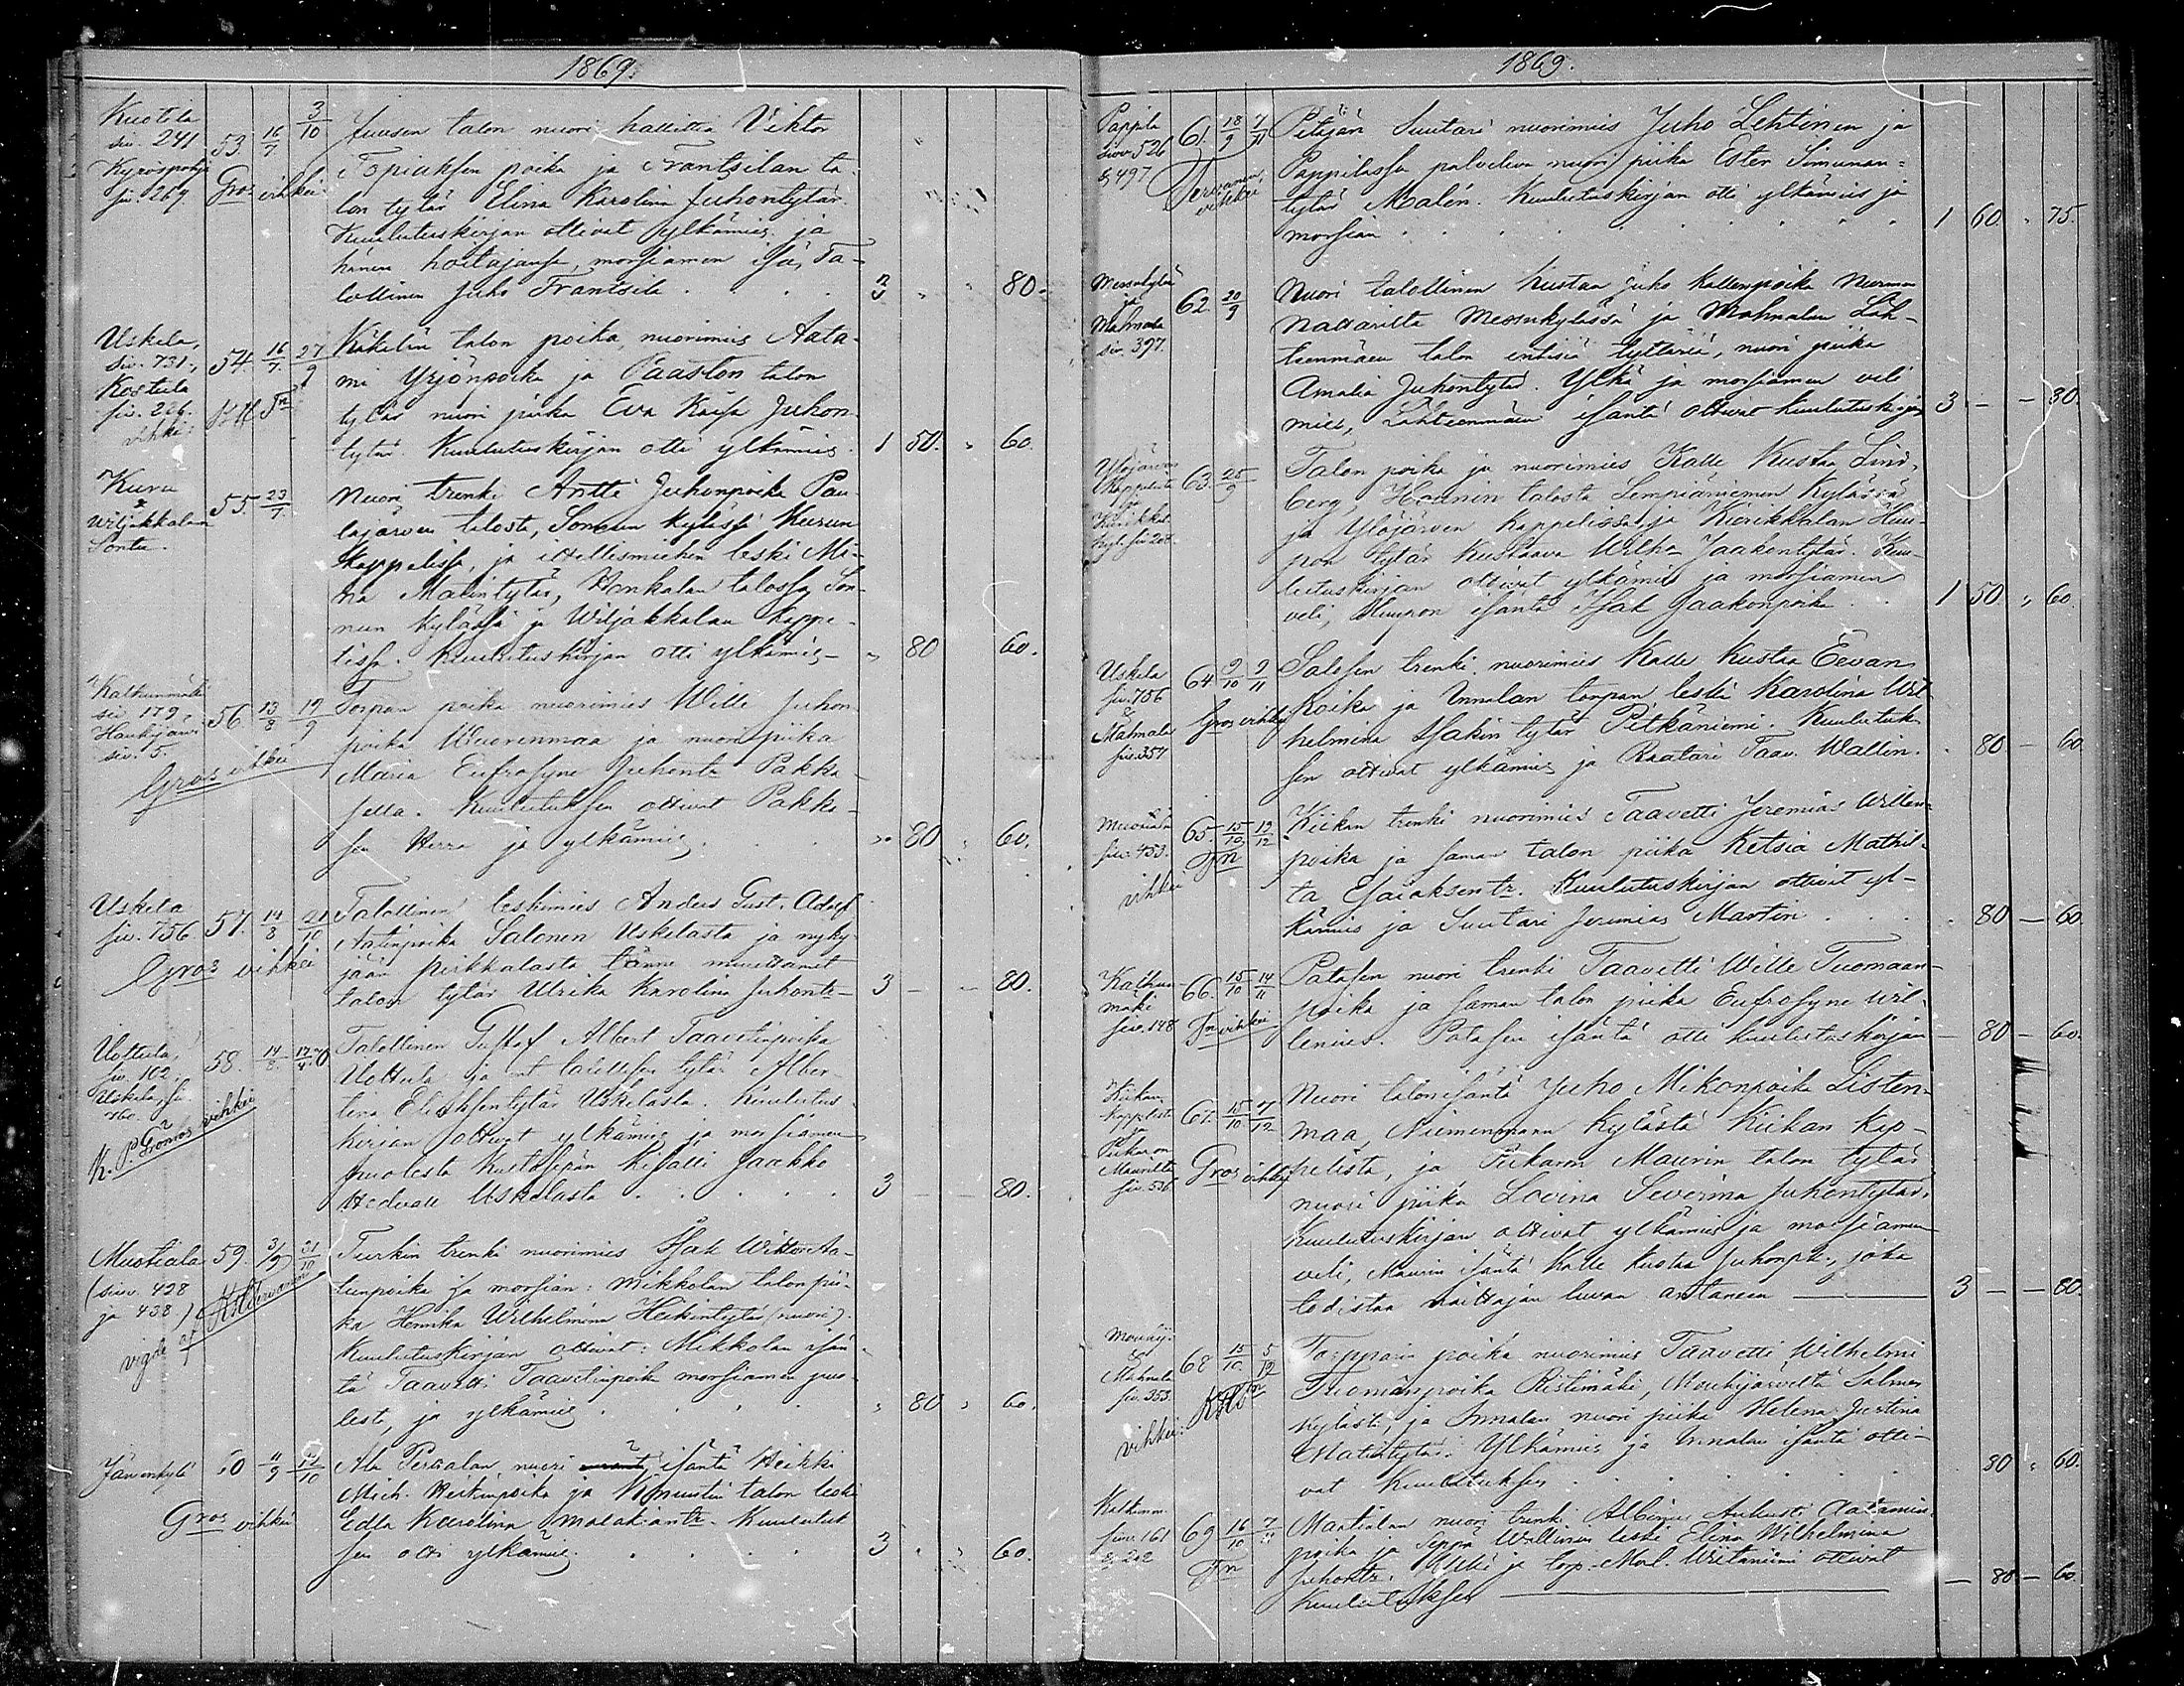 1869.
Kuotila
siv. 241
Kyröspohja
siv. 269
53 16/7 3/10
Gros vihkei
Juusen talon nuori hallittia Viktor
Topiaksen poika ja Frantsilan ta-
lon tytär Elina Karolina Juhontytär.
Kuulutuskirjan ottivat ylkämies ja
hänen hoitajansa, morsiamen isä, Ta-
lollinen Juho Frantsila . . . 3 " " 80.
Uskela,
siv. 731.,
Kostula
siv. 226.
vihki:
54. 16/7. 27/9
Käkelän talon poika, nuorimies Aata-
mi Yrjönpoika ja Paaston talon
tytär nuori piika Eva Kaisa Juhon-
tytär. Kuulutuskirjan otti ylkämies. 1 50. " 60.
Kuru
&
Wiljakkalan
Sontu.
55. 23/7.
Nuori trenki Antti Juhonpoika Pau-
lajärven talosta, kylässä Kurun
Kappelissa, ja itsellismiehen leski Mi-
na Matintytär, Hankalan talossa Son-
nun kylässä ja Wiljakkalan Kappe-
lissa. Kuulutuskirjan otti ylkämies - " 80 60.
Kalkunmäki
siv. 179
Haukijärvi
siv. 5.
56 13/8 19/9
Gros vihkei
Torpan poika nuorimies Wille Juhon
poika Wuorenmaa ja nuori piika
Maria Eufrosyne Juhontr Pakka-
sella. Kuulutuksen ottivat Pakka-
sen Herra ja ylkämies. . . . " 80 " 60.
Uskela
siv. 756
57. 14/8 21/10
Gros vihkei
Talollinen leskimies Anders Gust. Adolf
Antinpoika Salonen Uskelasta ja nyky-
jään pirkkalasta tänne muuttanut
talon tytär Ulrika Karolina Juhontr - 3 - - 80.
Uottula,
siv. 102.
Uskela, siv.
760.
58. 14/8.
vihkei
Talollinen Gustaf Albert Taavetinpoika
Uottula ja nt talollisen tytär Alber-
tina Eliaksentytär Uskelasta. Kuulutus-
kirjan ottivat ylkämies ja morsiamen
puolesta Kisälli Jaakko
Hedvall Uskelasta . . . . . 3 - 80.
Mustiala
(siv. 428
ja 438)
59. 3/9 31/10
vigde af
Turkin trenki nuorimies Isak Wiktor Aa-
tunpoika ja morsian: Mikkolan talon pii-
ka Henrika Wilhelmina Heikintytär (nuori).
Kuulutuskirjan ottivat: Mikkolan isän-
tä Taavetti Taavetinpoika morsiamen puo-
lesta, ja ylkämies . . . . " 80 " 60.
Jänienkylä
60 11/9
Gros vihkei
Ala Pertalan nuori isäntä Heikki
Mich. Heikinpoika ja talon leski
Edla Karolina Malakiantr. Kuulutuk-
sen otti ylkämies. . . . . 3 " " 60.
1869.
Pappila
sivv 526
& 497
61. 18/9 7/11
vihkei
Pitäjän Suutari nuorimies Juho Lehtinen ja
Pappilassa palveleva nuori piika Ester Simunan-
tytär Malén. Kuulutuskirjan otti ylkämies ja
morsian . . . . . . 1 60. " 75.
Messukylän
ja
Mahnala
siv. 397.
62. 20/9
Nuori talollinen Kustaa Juho Kallenpoika Nurmen
Nattarilta Messukylässä ja Mahnalan Läh-
teenmäen talon entisiä tyttäriä, nuori piika
Amalia Juhontytär. Ylkä ja morsiamen veli
mies, Lähteenmäen isäntä ottivat kuulutuskirjan 3 - - 80.
Ylöjärven
Kappelista
ja
63. 25/9
Talon poika ja nuorimies Kalle Kustaa Lind-
berg, Haunin talosta Lempiäniemen Kylässä
ja Ylöjärven Kappelissa, ja Kierikkalan Huu-
pon tytär Kustaava Wilha Jaakontytär. Kuu-
lutuskirjan ottivat ylkämies ja morsiamen
veli, Huupon isäntä Isak Jaakonpoika . . 1 50 " 60.
Uskela
siv. 756
&
Mahnala
siv. 357
64. 9/10 9/11
Gros vihkei
Salosen trenki nuorimies Kalle Kustaa Eevan
poika ja Innalan torpan leski Karolina Wil-
helmina Isakin tytär Pitkäniemi. Kuulutuk-
sen ottivat ylkämies ja Räätäri Taav. Wallin. . 80 - 60
siv. 453.
65. 15/10 19/12
Fn
vihkei
Kiikan trenki nuorimies Taavetti Jeremias Willen-
poika ja saman talon piika Ketsia Mathil-
ta Esaiaksentr. Kuulutuskirjan ottivat yl-
kämies ja Suutari Jeremias Martin . . . . 80 - 60.
Kalkun
mäki
siv. 148
66. 15/10 14/11
Fn vihkei
Patasen nuori trenki Taavetti Wille Tuomaan-
poika ja saman talon piika Eufrosyne Wil-
lenius. Patasen isäntä otti kuulutuskirjan - 80 - 60.
Kiikan
Kappelista
ja
Maurilta
siv. 536
67. 15/10 7/12
Gros vihkei
Nuori talonisäntä Juho Mikonpoika Listen-
maa, Niemenmaan Kylästä Kiikan Kap-
pelista, ja Maurin talon tytär
nuori piika Lovina Severina Juhontytär.
Kuulutuskirjan ottivat ylkämies ja morsiamen
veli, Maurin isäntä Kalle Kustaa Juhonpk, joka
todistaa naittajan luvan antaneen 3 - - 80.
&
Mahnala
siv. 353.
68 15/10 5/12
vihkei:
Torpparin poika nuorimies Taavetti Wilhelmi
Tuomanpoika Ristimäki, Mouhijärveltä Salmen
kylästä, ja Innalan nuori piika Helena Justina
Matintytär. Ylkämies ja Innalan isäntä otti-
vat kuulutuksen . . . . . . 80 " 60.
Kalkunm.
sivv 161
& 202
69 16/10 7/11
Fn
Maatialan nuori trenki Albinus Aukusti Aatamin-
poika ja Seppä Wallinin leski Elina Wilhelmina
Juhontr. Ylkä ja torp. ottivat
kuulutuksen - 80 - 60.